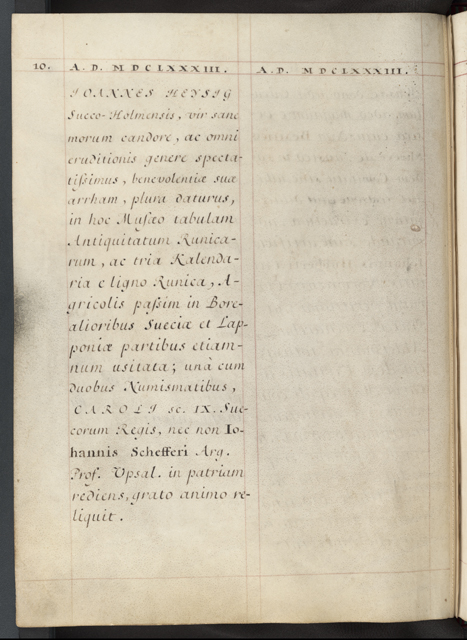 10. A. D. M D C L X X X I I I. A. D. M D C L X X X I I I.
IOANNES HEYSIG
Sueco-Holmensis, vir sane
morum candore, ac omni
eruditionis genere specta-
tißimus, benevolentiæ suæ
arrham, plura daturus,
in hoc Musæo tabulam
Antiquitatum Runica-
rum, ac tria Kalenda-
ria e ligno Runica, A-
gricolis paßim in Bore-
alioribus Sueciæ et Lap-
poniæ partibus etiam-
num usitata; unà cum
duobus Numismatibus,
CAROLI sc. IX. Sue-
corum Regis, nec non Io-
hannis Schefferi Arg.
Prof. Upsal. in patriam
rediens, grato animo re-
liquit.